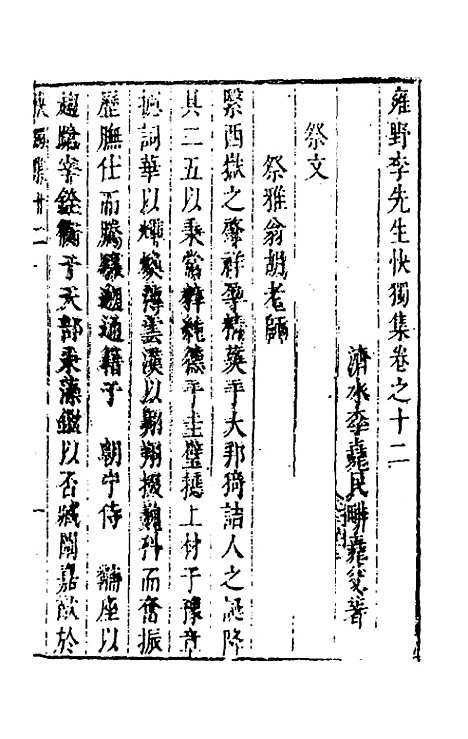 雍野李先生快獨集卷之十二
濟水李堯民畊堯父著
祭文
祭雅翁胡老師
緊西嶽之肇祥孕精英于大邦猗喆人之誕降
具二五以乘當粹純德于圭璧㩦上材于豫章
摛詞華以煥薄雲漢以翱翔掇巍科而奮振
歷膴仕而騰驤通籍于 朝宁侍 黼座以
趨蹌宰銓衡于天部秉藻鑑以否臧闡嘉猷於
快獨集卷十二 一